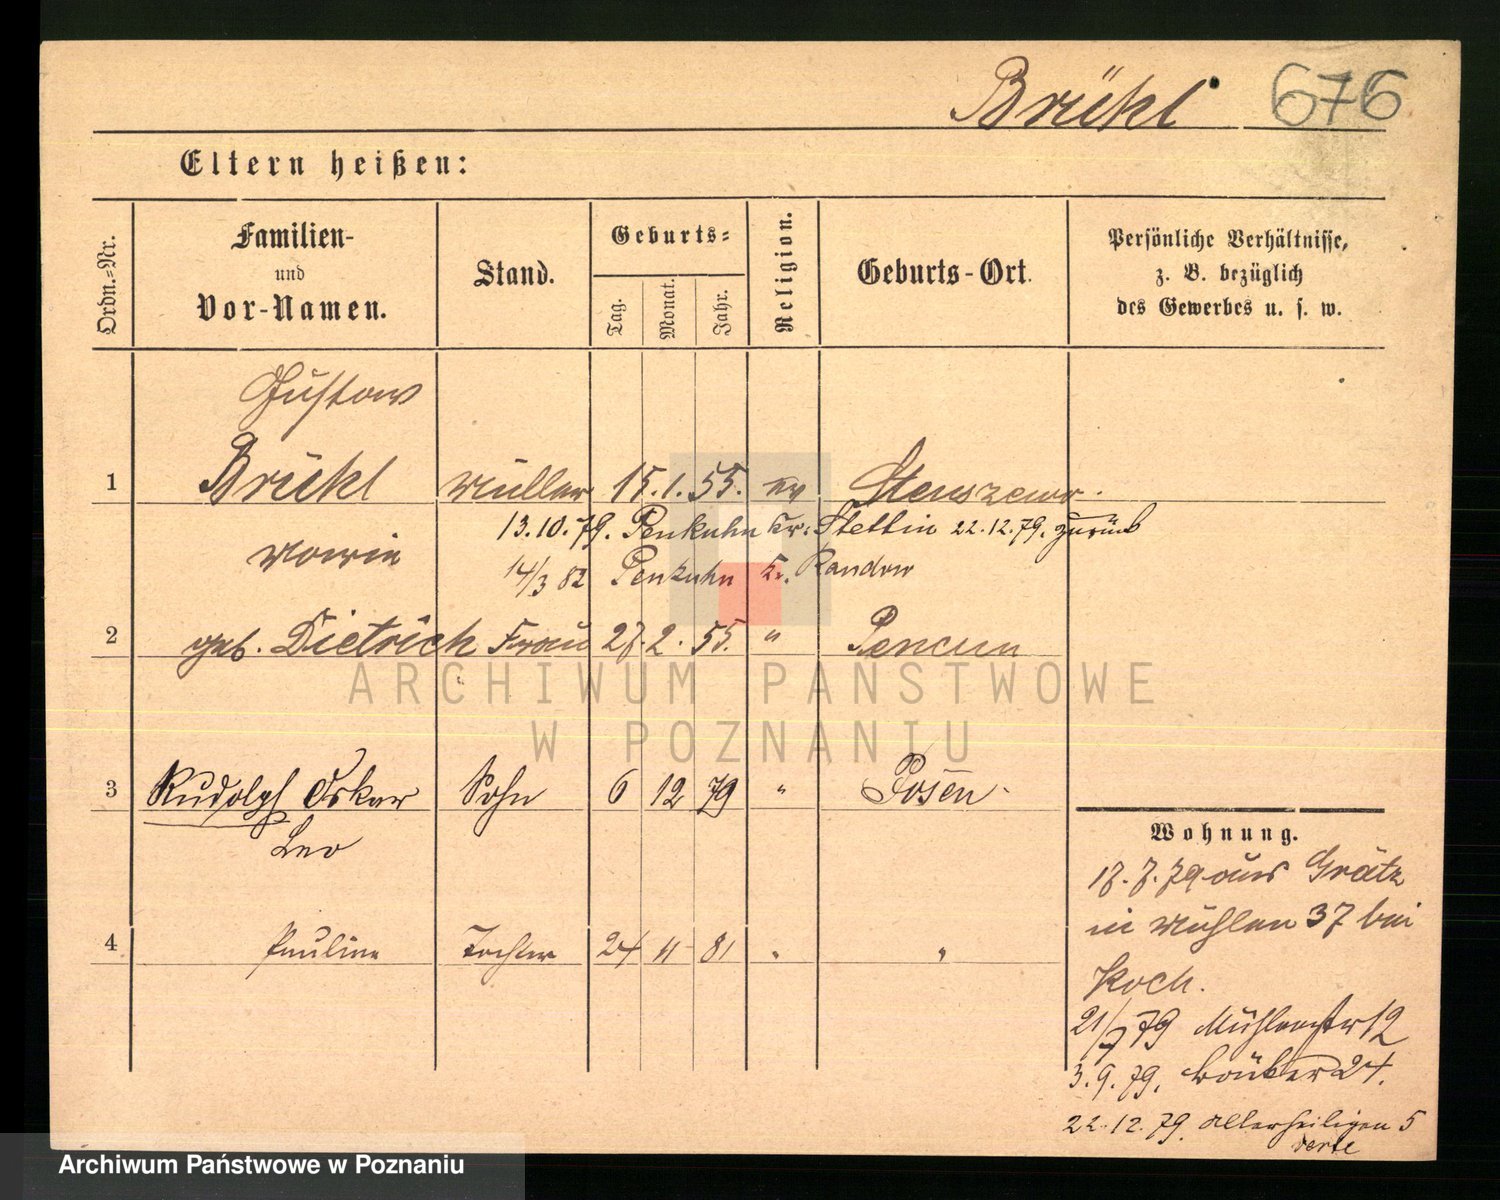 Brükl 676
Eltern heißen:
Ordn.=Nr.
Familien-
und
Vor-Namen.
Stand.
Geburts=
Tag.
Monat.
Jahr.
Religion.
Geburts-Ort.
Persönliche Verhältnisse,
z. B. bezüglich
des Gewerbes u. s. w.
Gustav
1 Brükl Müller 15. 1. 55. ev Stenszewo.
13.10.79. Penkuhn Kr. Stettin 22.12.79. zurück
Marie
14/3 82 Penkuhn Kr. Randow
2 geb. Dietrich Frau 27. 2. 55. " Pencun
3 Rudolph Oskar Sohn 6 12 79 " Posen
Leo
4 Pauline Tochter 24 11 81 " "
Wohnung.
17.7.79 aus Grätz
in Mühlen 37 bei
Koch.
21/7 79 Mühlenstr 12
3.9.79. 24.
22.12.79. Allerheiligen 5
verte
ARCHIWUM PAŃSTWOWE
W POZNANIU
Archiwum Państwowe w Poznaniu